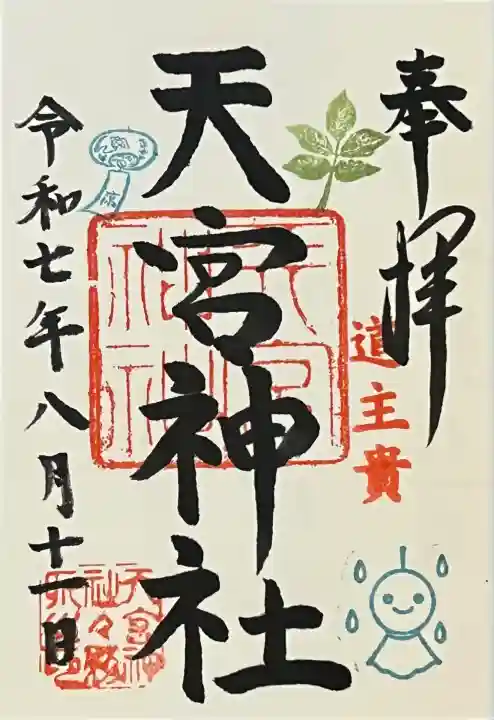 奉拝
道主貴
天宮神社
天宮神社
令和七年八月十一日